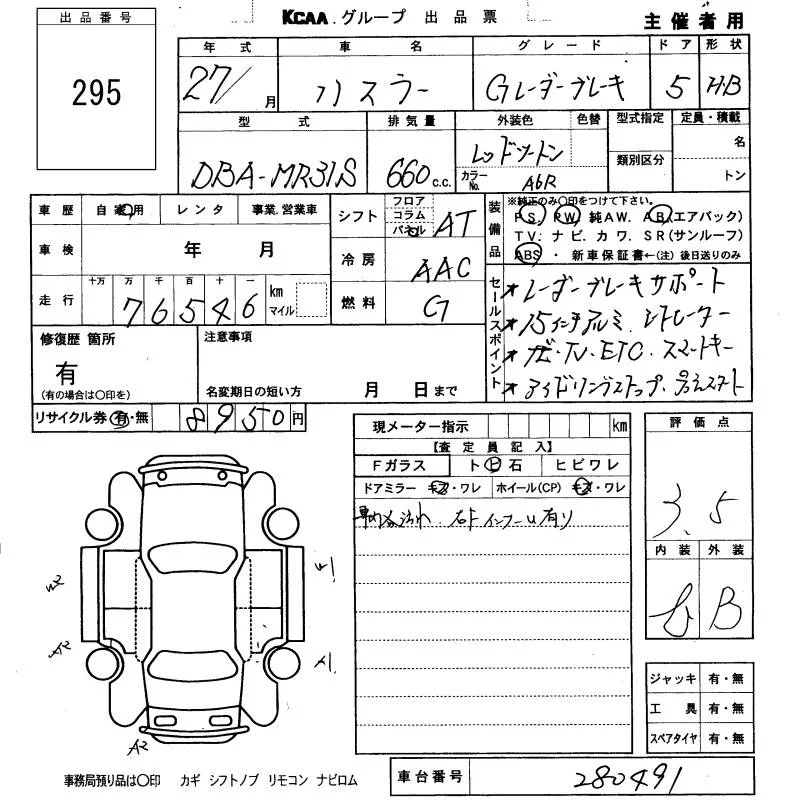 出品番号
295
KCAA.グループ 出品票
主催者用
年式 車名 グレード ドア 形状
27/ 月 ハスラー Gレーダーブレーキ 5 H.B
型式 排気量 外装色 色替 型式指定 定員・積載
DBA-MR31S 660 c.c. レッドツートン 名
カラーNo. A6R 類別区分 トン
車歴 自家用 レンタ 事業.営業車
シフト フロア コラム パネル AT
車検 年 月
冷房 AAC
走行 十万 万 千 百 十 一
76546 km マイル
燃料 G
装備品 ※純正のみ〇印をつけて下さい。
PS. PW. 純AW. AB.(エアバック)
TV: ナビ. カワ. SR(サンルーフ)
ABS ・ 新車保証書←(注) 後日送りのみ
セールスポイント
★レーダーブレーキサポート
★15インチアルミ. シートヒーター
★ナビ・TV・ETC. スマートキー
★アイドリングストップ.
修復歴 箇所
有
(有の場合は〇印を)
注意事項
名変期日の短い方 月 日まで
リサイクル券 有・無 8950円
現メーター指示 km
【査定員記入】
Fガラス ト ビ 石 ヒビワレ
ドアミラー キズ・ワレ ホイール(CP) キズ・ワレ
有り
評価点
3.5
内装 外装
B
W2
A2
A2
W1
A1
ジャッキ 有・無
工具 有・無
スペアタイヤ 有・無
事務局預り品は〇印 カギ シフトノブ リモコン ナビロム
車台番号 280491